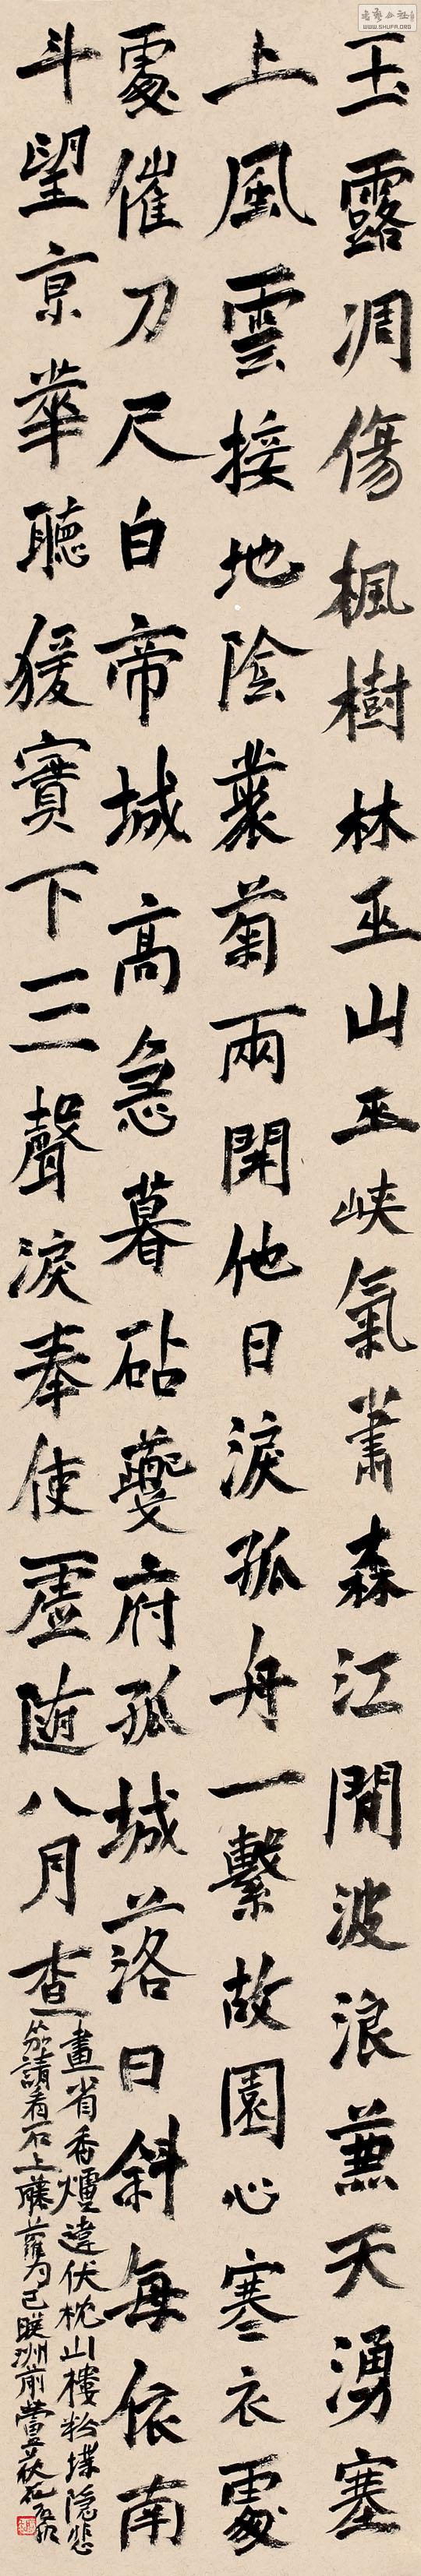 玉露凋傷楓樹林巫山巫峽氣蕭森江間波浪兼天湧塞
上風雲接地陰叢菊兩開他日淚孤舟一繫故園心寒衣處
處催刀尺白帝城高急暮砧夔府孤城落日斜每依南
斗望京華聽猨實下三聲淚奉使虛随八月查
畫省香爐違伏枕山樓粉堞隱悲
笳請看石上藤蘿月已映洲前蘆荻花
WWW.SHUFA.ORG